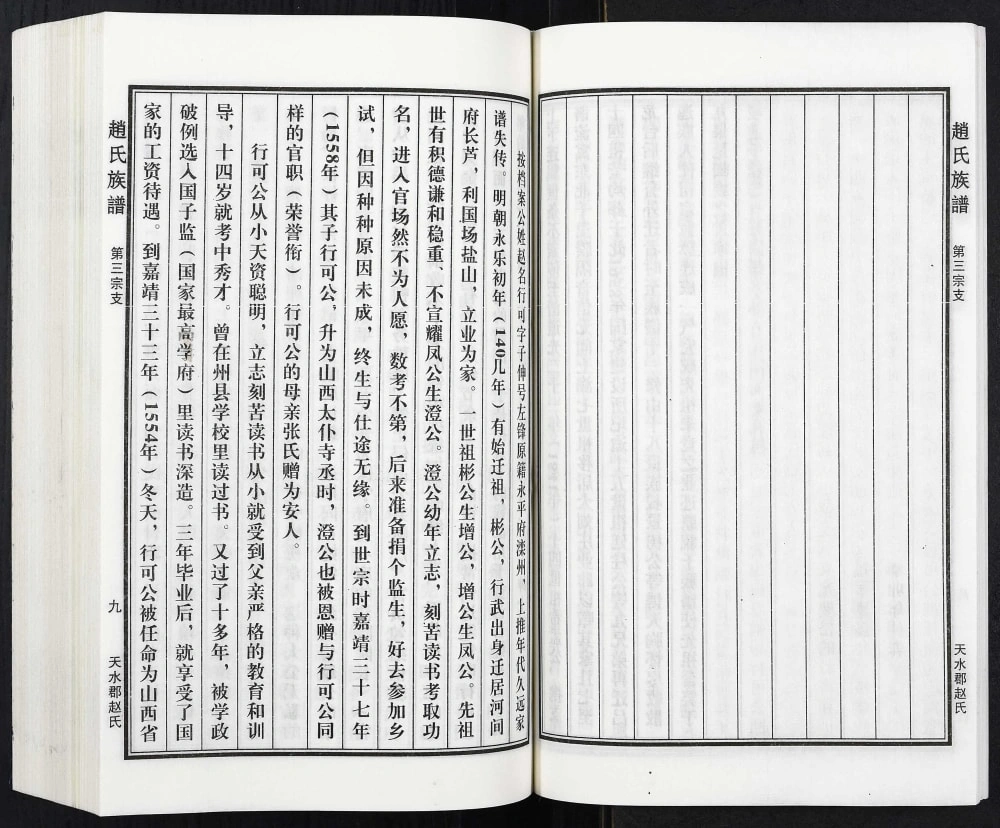 趙氏族譜
第三宗支
天水郡赵氏
按档案公姓赵名行可字子伸号左锋原籍永平府滦州，上推年代久远家
谱失传。明朝永乐初年（140几年）有始迁祖，彬公，行武出身迁居河间
府长芦，利国场盐山，立业为家。一世祖彬公生增公，增公生凤公。先祖
世有积德谦和稳重、不宣耀凤公生澄公。澄公幼年立志，刻苦读书考取功
名，进入官场然不为人愿，数考不第，后来准备捐个监生，好去参加乡
试，但因种种原因未成，终生与仕途无缘。到世宗时嘉靖三十七年
（1558年）其子行可公，升为山西太仆寺丞时，澄公也被恩赠与行可公同
样的官职（荣誉衔）。行可公的母亲张氏赠为安人。
行可公从小天资聪明，立志刻苦读书从小就受到父亲严格的教育和训
导，十四岁就考中秀才。曾在州县学校里读过书。又过了十多年，被学政
破例选入国子监（国家最高学府）里读书深造。三年毕业后，就享受了国
家的工资待遇。到嘉靖三十三年（1554年）冬天，行可公被任命为山西省
趙氏族譜
第三宗支
九
天水郡赵氏